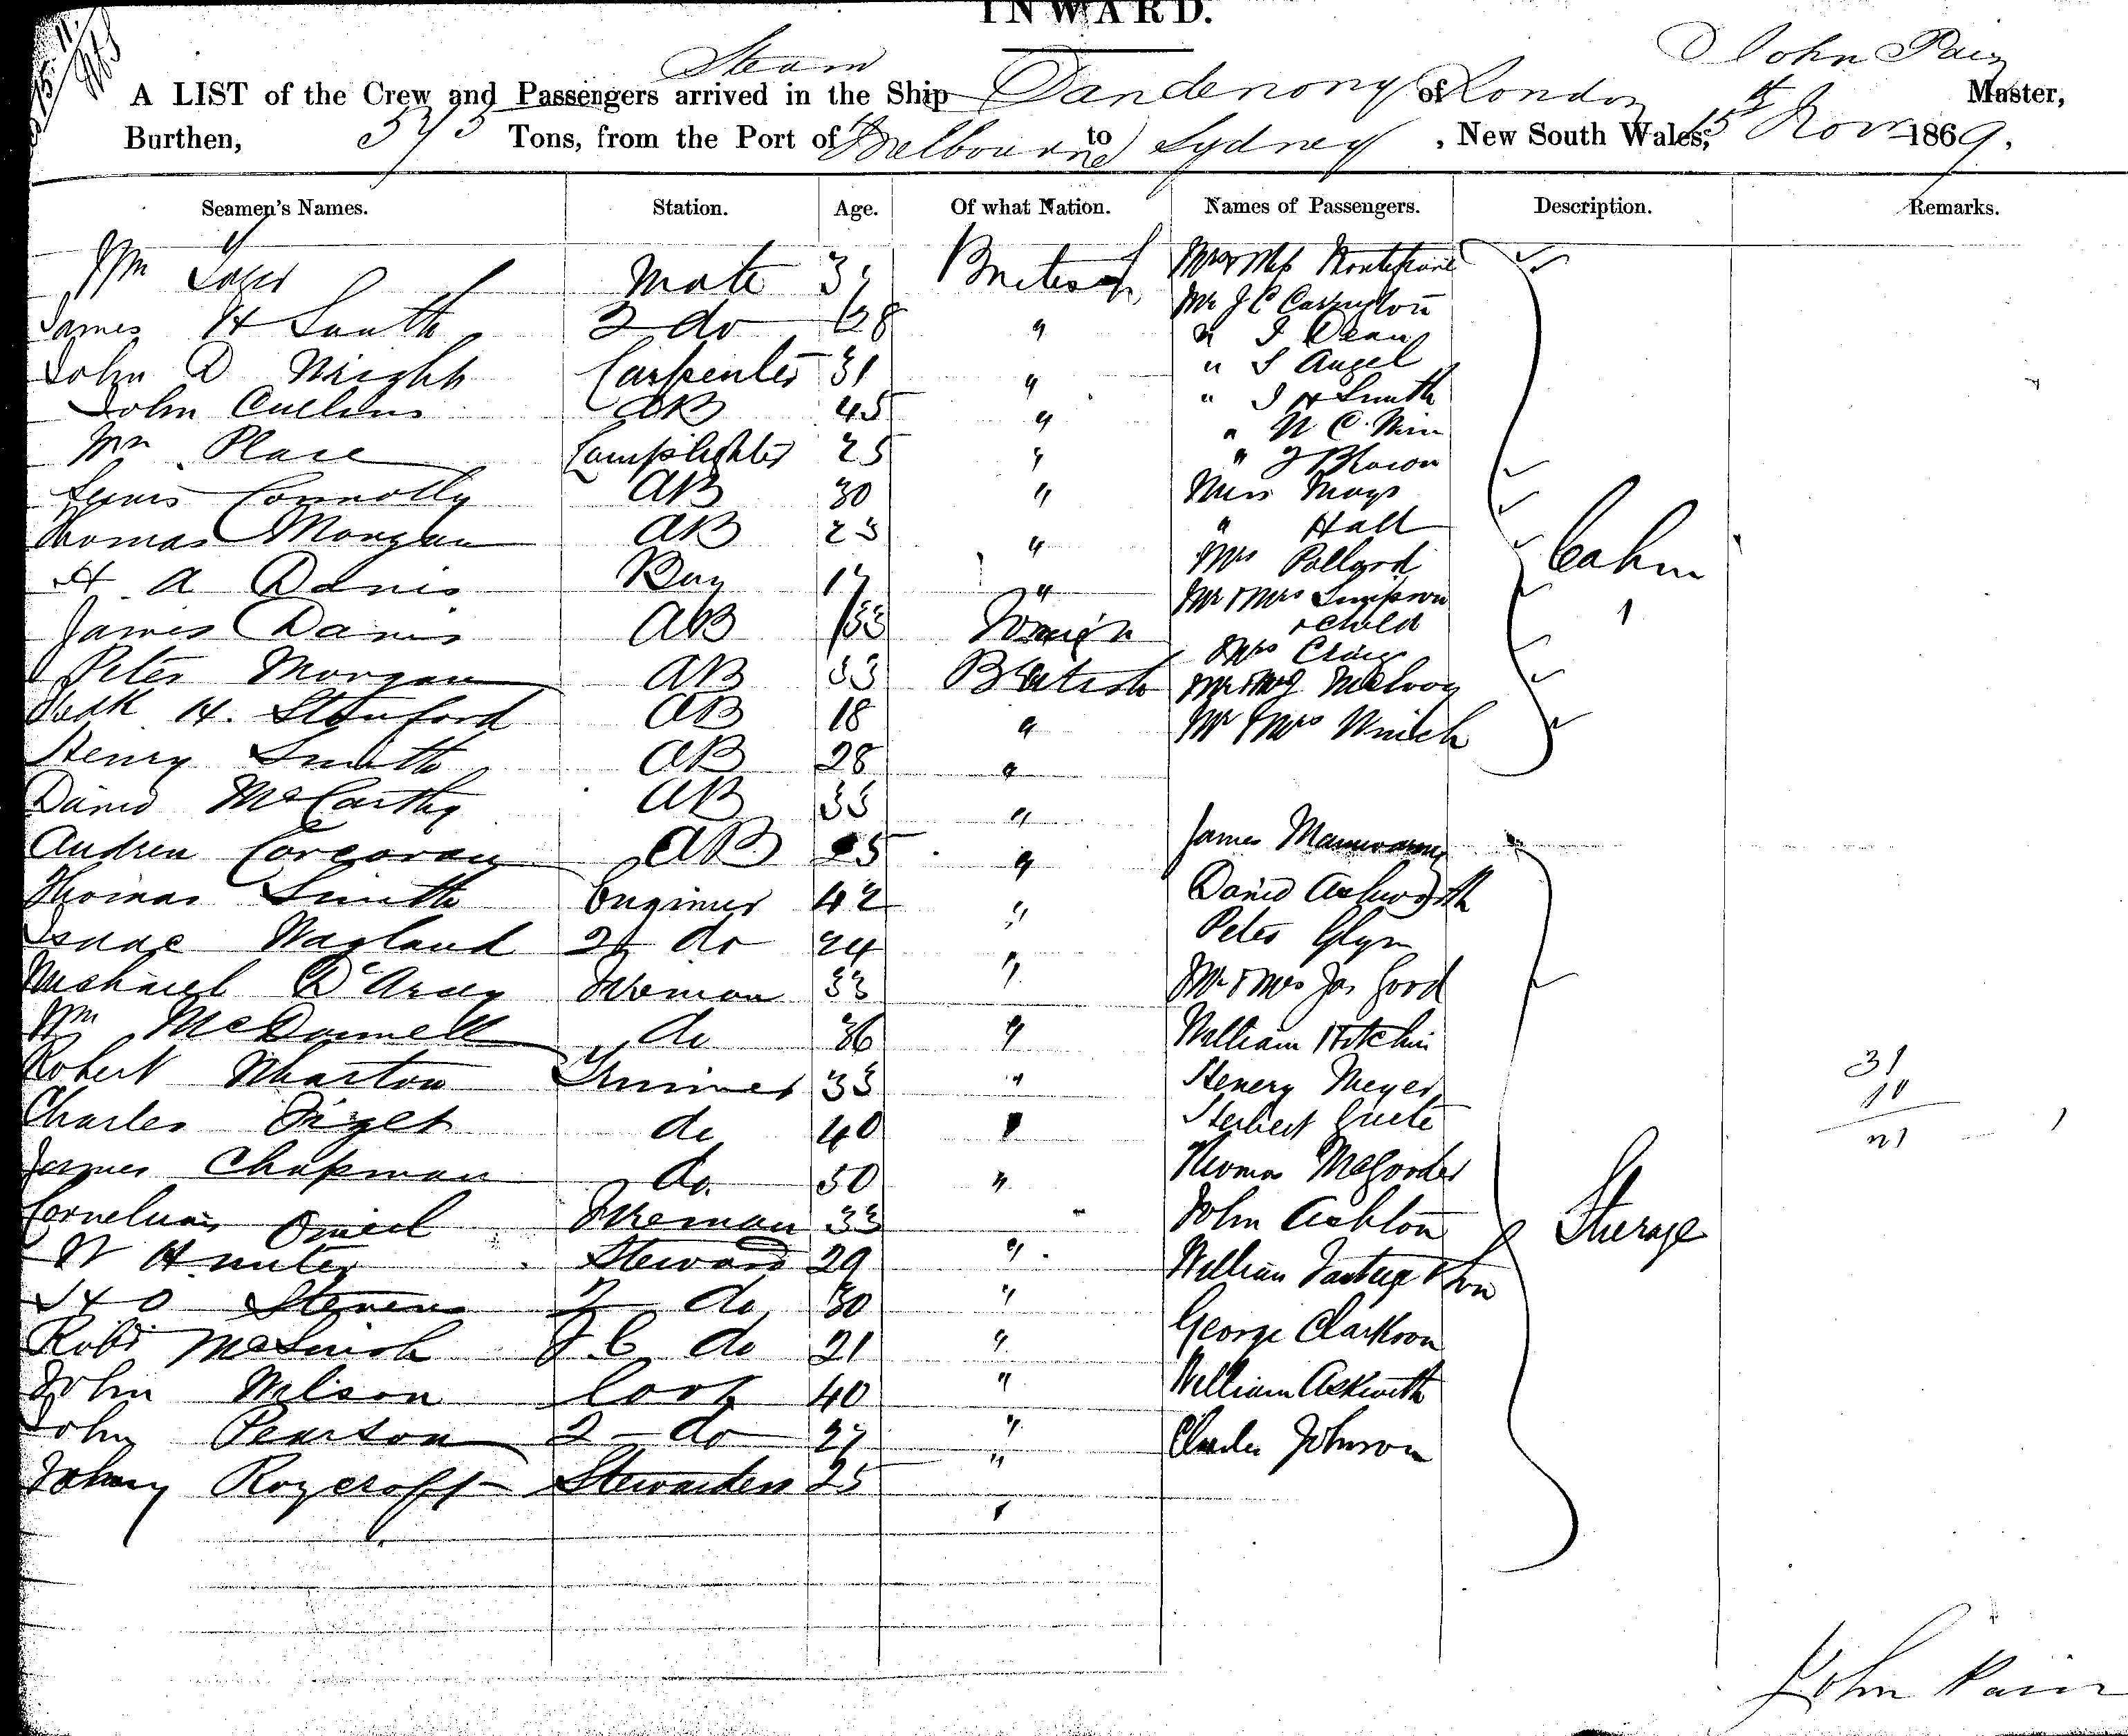 INWARD.
15.11.
Steam John Pain
A LIST of the Crew and Passengers arrived in the Ship Dandenong of London Master,
Burthen, 575 Tons, from the Port of Melbourne to Sydney , New South Wales, 15th Novr 1869.
Seamen's Names. Station. Age. Of what Nation. Names of Passengers. Description. Remarks.
Wm Mate British Mr & Miss Montefiore
James H Smith 2 do 28 " Mr J C Carrington
John D Wright Carpenter 31 " " I Dean
John Cullins AB 45 " " S Angel
Wm Place Lamplighter 25 " " J H Smith
Connolly AB 30 " " W C
Thomas Morgan AB 23 " "
H A Davis Boy 17 " Miss Mays
James Davis AB 33 Foreign " Hall
Peter Morgan AB 33 British Mrs Pollard
Fredk H. Stanford AB 18 " Mr & Mrs Simpson
Henry Smith AB 28 " & Child
David McCarthy AB 33 " Mrs Craig
Andrew Corcoran AB 25 " Mr & Mrs McIlroy
Thomas Smith Engineer 42 " Mr & Mrs Winch
Isaac Wayland 2 do 24 " Cabin
Michael D'Arcy Fireman 33 " James Mannwaring
Wm McDonnell do 36 " David Ashworth
Robert Wharton Trimmer 33 " Peter Glyn
Charles do 40 " Mr & Mrs Jas Good
James Chapman do 50 " William Hotchin
Cornelius Oneil Fireman 33 " Henery Meyer
W Hunter Steward 29 " Herbert
Stevens 2 do 30 " Thomas
Robt F C do 21 " John Ashton
John Wilson Cook 40 " William & Son
John Pearson 2 do 27 " George Clarkson
Roycroft Stewardess 25 " William Askwith
Charles Johnson
Steerage
John Pain